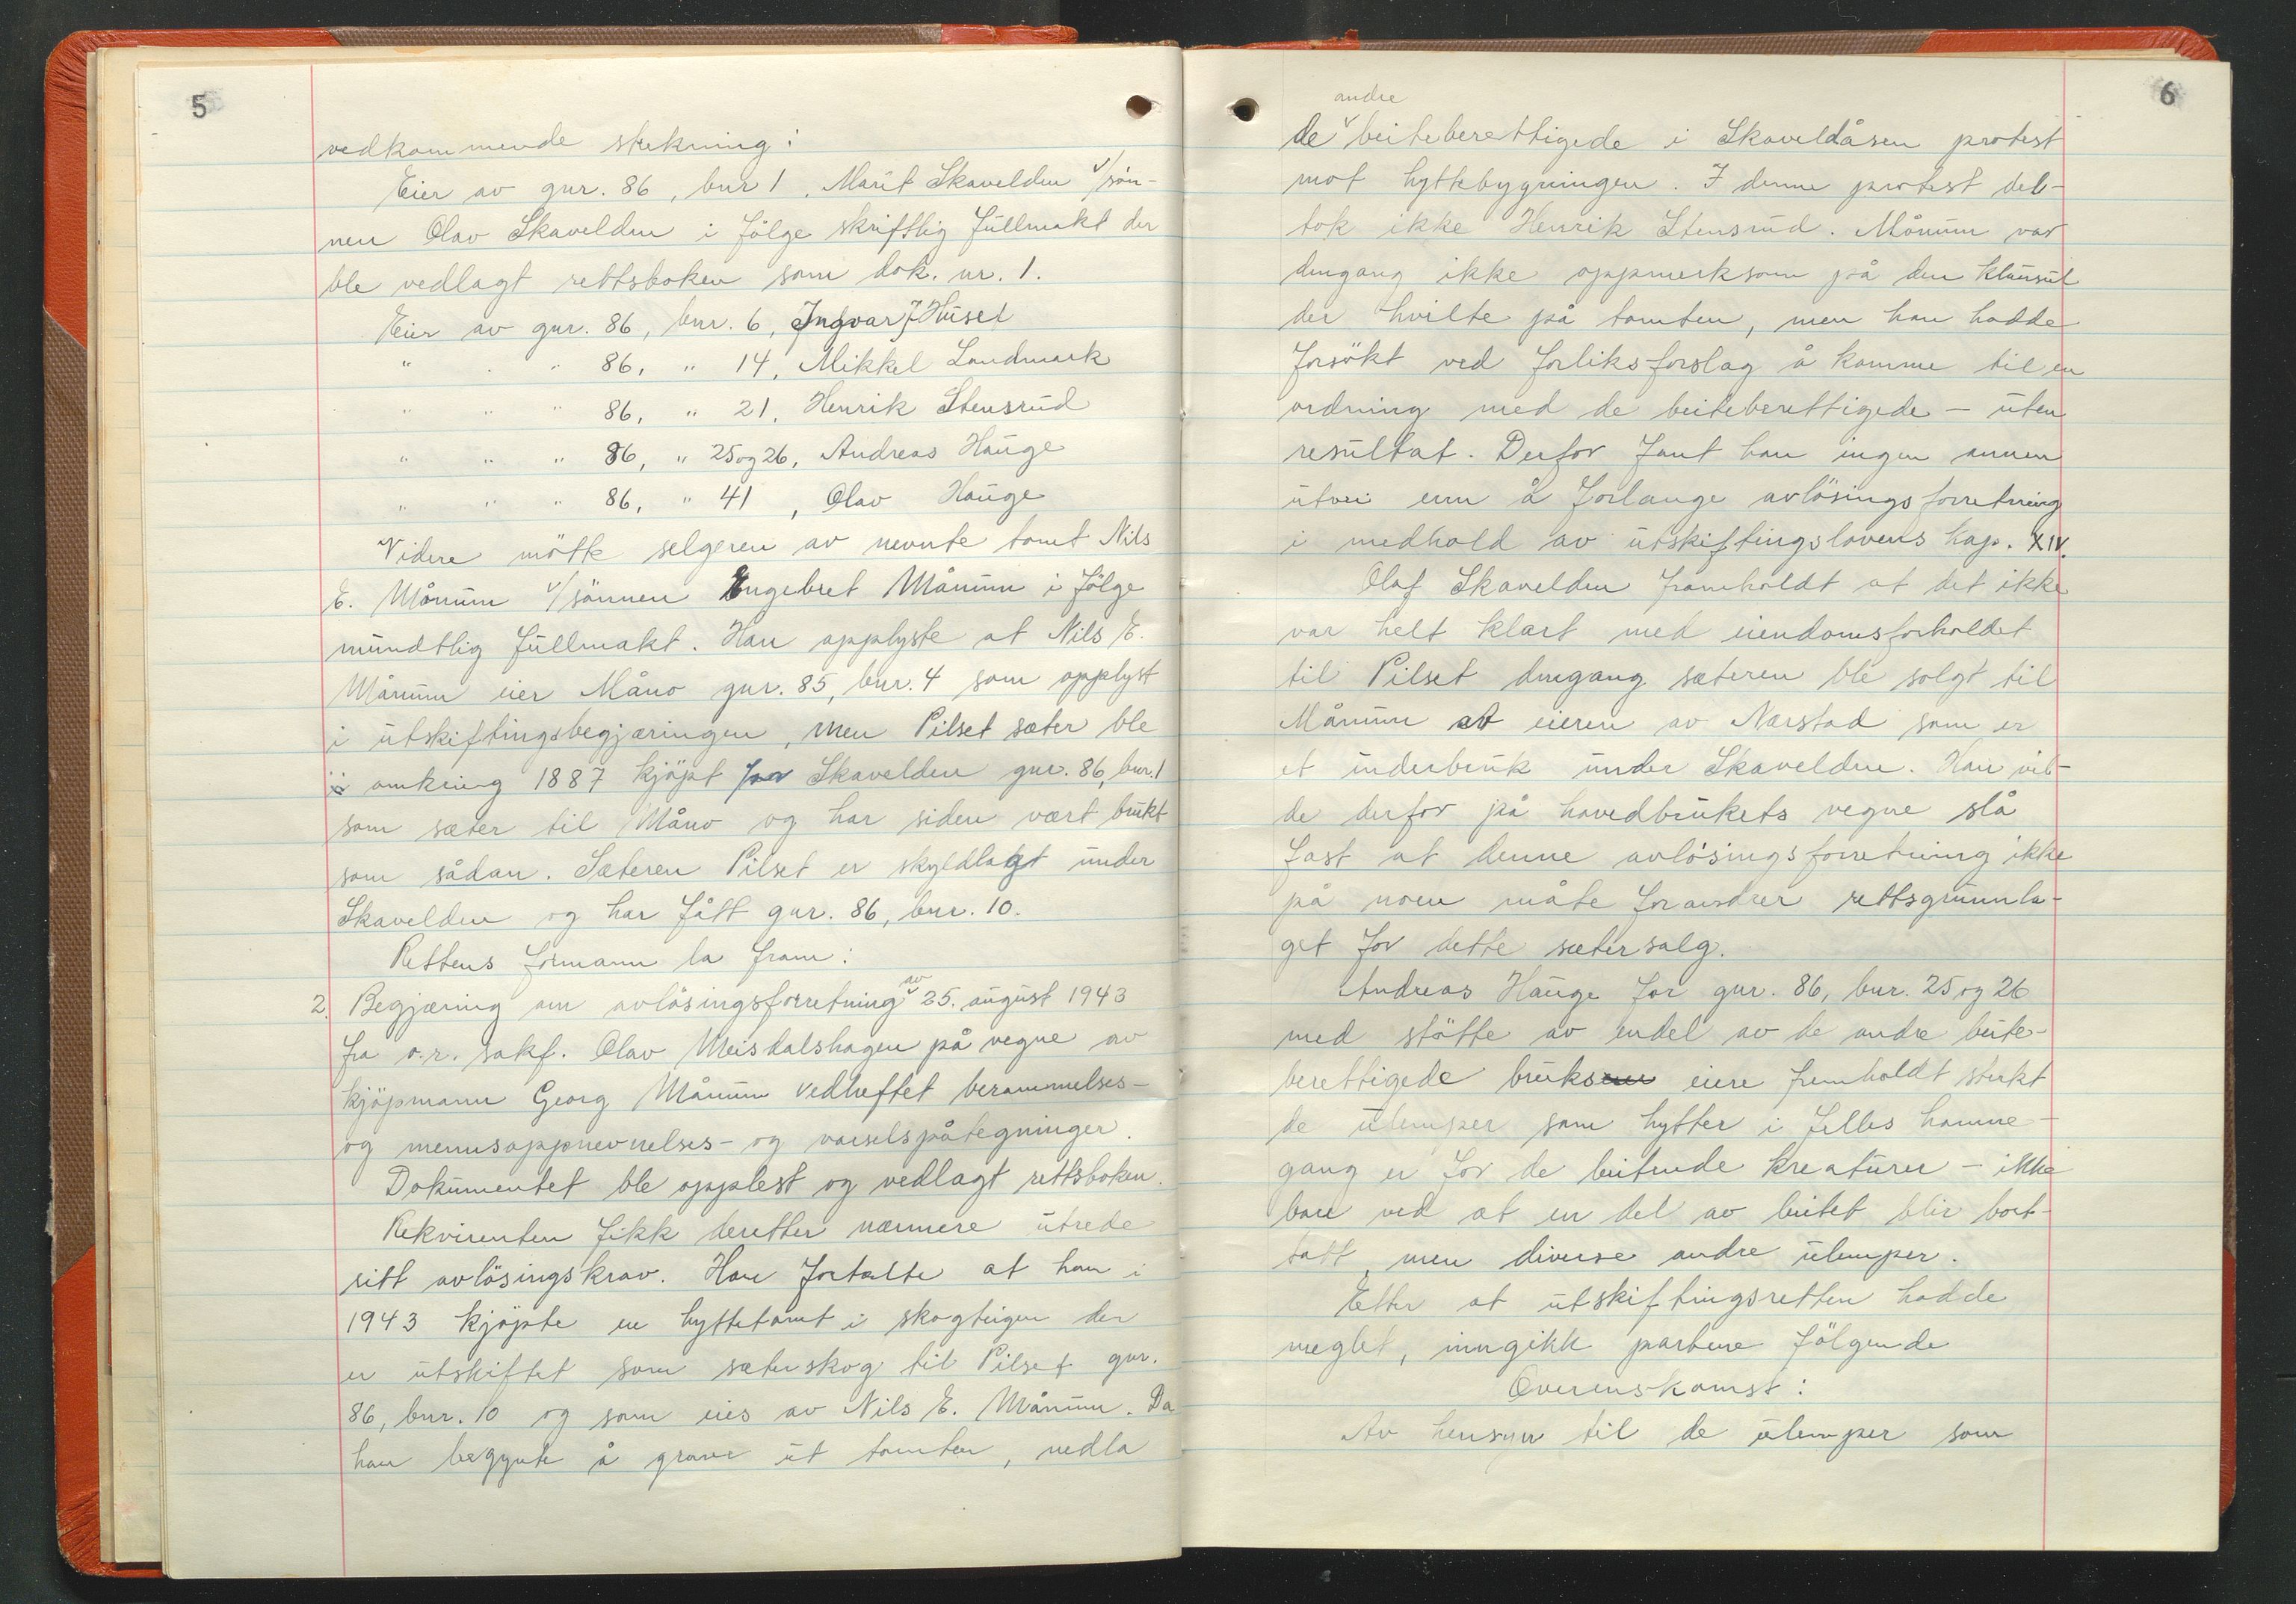 5
vedkommende strekning:
Eier av gnr. 86, bnr 1, Marit Skavelden v/søn-
nen Olav Skavelden i følge skriftlig fullmakt der
ble vedlagt rettsboken som dok. nr. 1.
Eier av gnr. 86, bnr. 6, Ingvar J. Huset
" " " 86, " 14, Mikkel Landmark
" " " 86, " 21, Henrik Stensrud
" " " 86, " 25 og 26, Andreas Hauge
" " " 86, " 41, Olav Hauge
Videre møtte selgeren av nevnte tomt Nils
E. Månum v/sønnen Engebret Månum i følge
mundtlig fullmakt. Han opplyste at Nils E.
Månum eier Måno gnr. 85, bnr. 4 som opplyst
i utskiftingsbegjæringen, men Pilset sæter ble
i omkring 1887 kjøpt fra Skavelden gnr. 86, bnr. 1
som sæter til Måno og har siden vært brukt
som sådan. Sæteren Pilset er skyldlagt under
Skavelden og har fått gnr. 86, bnr. 10.
Rettens formann la fram:
2. Begjæring om avløsingsforretning av 25. august 1943
fra o.r. sakf. Olav Meisdalshagen på vegne av
kjøpmann Georg Månum vedheftet berammelses-
og mennsoppnevnelses- og varselspåtegninger.
Dokumentet ble opplest og vedlagt rettsboken.
Rekvirenten fikk deretter nærmere utrede
sitt avløsingskrav. Han fortalte at han i
1943 kjøpte en hyttetomt i skogteigen der
er utskiftet som sæterskog til Pilset gnr.
86, bnr. 10 og som eies av Nils E. Månum. Da
han begynte å grave ut tomten, nedla
6
andre
de beiteberettigede i Skaveldåsen protest
mot hyttebygningen. I denne protest del-
tok ikke Henrik Stensrud. Månum var
dengang ikke oppmerksom på den klausul
der hvilte på tomten, men han hadde
forsøkt ved forliksforslag å komme til en
ordning med de beiteberettigede – uten
resultat. Derfor fant han ingen annen
utvei enn å forlange avløsingsforretning
i medhold av utskiftingslovens kap. XIV.
Olaf Skavelden framholdt at det ikke
var helt klart med eiendomsforholdet
til Pilset dengang sæteren ble solgt til
Månum at eieren av Nærstad som er
et underbruk under Skavelden. Han vil-
de derfor på hovedbrukets vegne slå
fast at denne avløsingsforretning ikke
på noen måte forandrer rettsgrunnla-
get for dette sætersalg.
Andreas Hauge for gnr. 86, bnr. 25 og 26
med støtte av endel av de andre beite-
berettigede bruks eiere fremholdt sterkt
de ulemper som hytter i felles havne-
gang er for de beitende kreaturer – ikke
bare ved at en del av beitet blir bort-
tatt, men diverse andre ulemper.
Etter at utskiftingsretten hadde
meglet, inngikk partene følgende
Overenskomst:
Av hensyn til de ulemper som